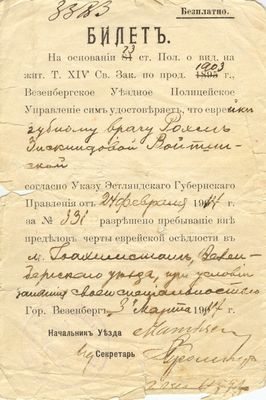 3883
Безплатно.
БИЛЕТЪ.
23
На основаніи 81 ст. Пол. о вид. на
1903
жит. Т. XIV Св. Зак. по прод. 1895 г.,
Везенбергское Уѣздное Полицейское
Управленіе симъ удостовѣряетъ, что еврейкѣ
зубному врачу Рохели
согласно Указу Эстляндскаго Губернскаго
Правленія отъ 24 февраля 1914 г.
за № 331 разрѣшено пребываніе внѣ
предѣловъ черты еврейской осѣдлости въ
м. Іоахимсталѣ, Везен-
бергскаго уѣзда, при условіи
занятія своей спеціальностью
Гор. Везенбергъ 3 Марта 1914 г.
Начальникъ Уѣзда
Секретарь